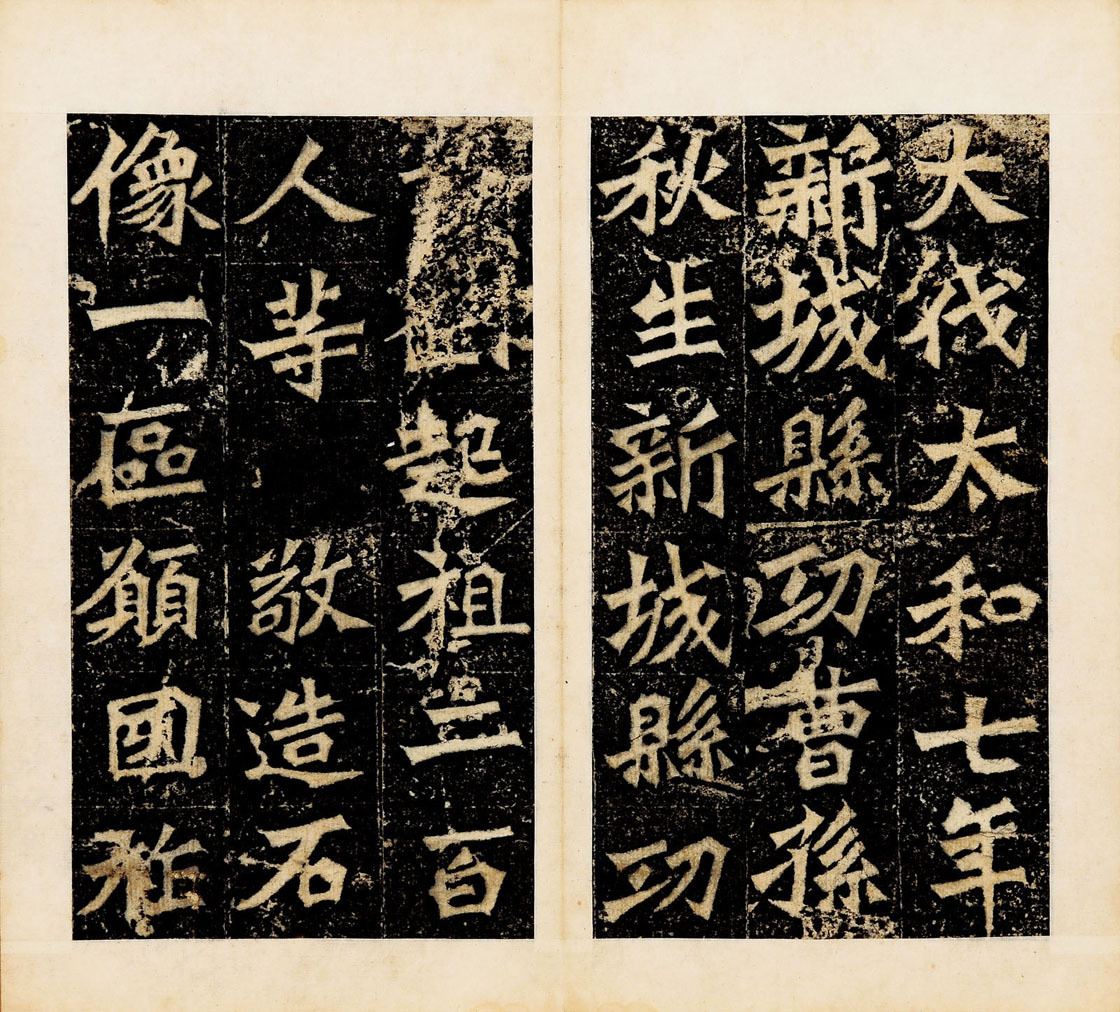 大代太和七年
新城縣功曹孫
秋生新城縣功
起祖二百
人等敬造石
像一區願國祚